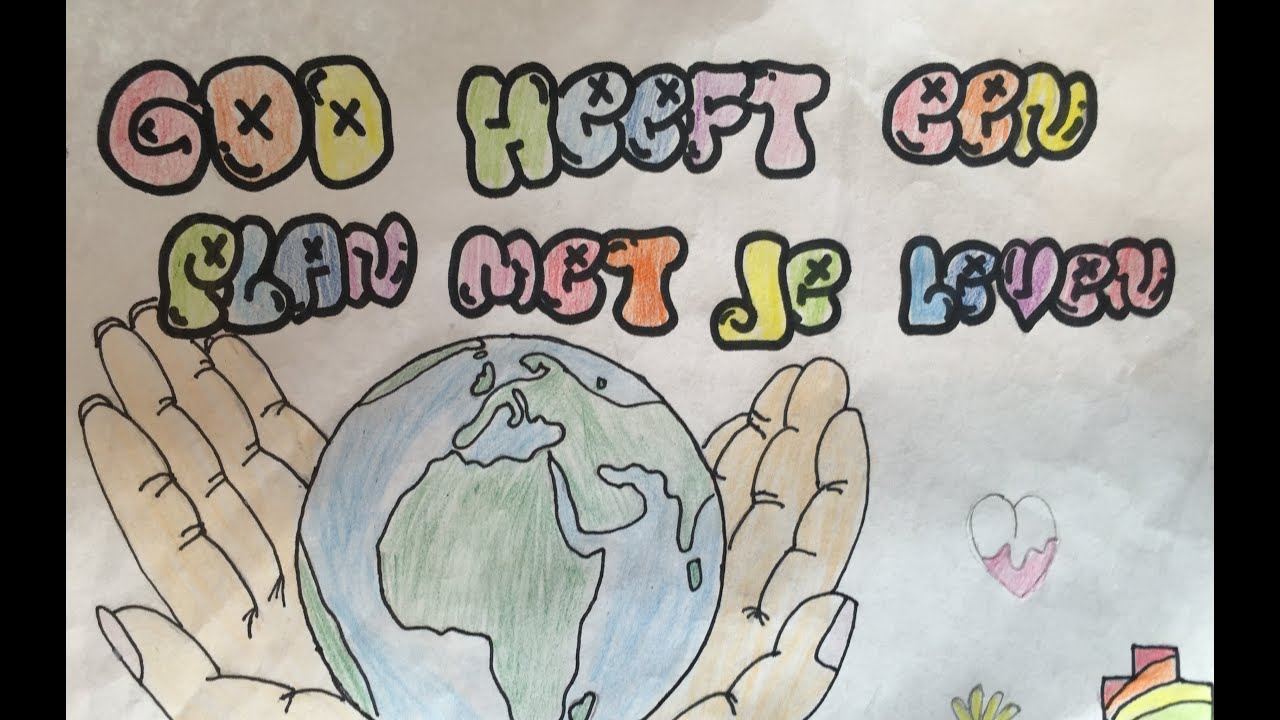 GOD HEEFT EEN
PLAN MET JE LEVEN